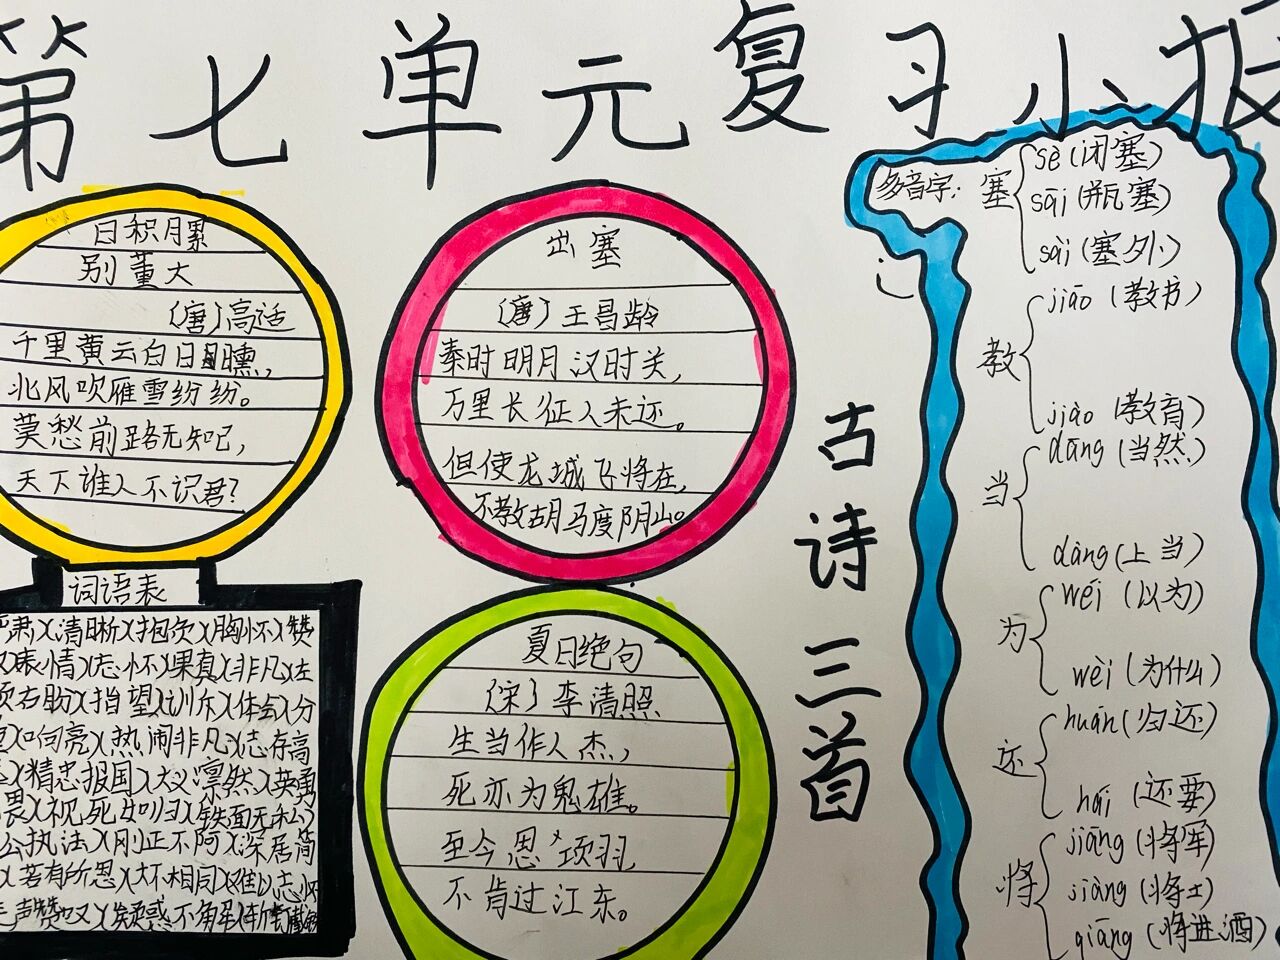 第七单元复习小报
日积月累
别董大
(唐)高适
千里黄云白日曛,
北风吹雁雪纷纷。
莫愁前路无知己,
天下谁人不识君?
词语表
严肃)(清晰)(抱负)(胸怀)(赞
叹)(表情)(志怀)(果真)(非凡)(左
顾右盼)(指望)(训斥)(体会)(分
响亮)(热闹非凡)(志存高
)(精忠报国)(大义凛然)(英勇
畏)(视死如归)(铁面无私)
公执法)(刚正不阿)(深居简
)(若有所思)(大不相同)(难以忘怀
声赞叹)(疑惑不解)(斩钉截铁
出塞
(唐)王昌龄
秦时明月汉时关,
万里长征人未还。
但使龙城飞将在,
不教胡马度阴山。
夏日绝句
(宋)李清照
生当作人杰,
死亦为鬼雄。
至今思项羽,
不肯过江东。
古诗三首
多音字:
塞
sè (闭塞)
sāi (瓶塞)
sài (塞外)
教
jiāo (教书)
jiào (教育)
当
dāng (当然)
dàng (上当)
为
wéi (以为)
wèi (为什么)
还
huán (归还)
hái (还要)
将
jiāng (将军)
jiàng (将士)
qiāng (将进酒)